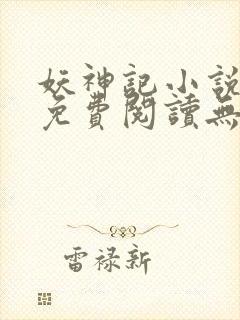 妖神記小說
免費閱讀無
雷禄新